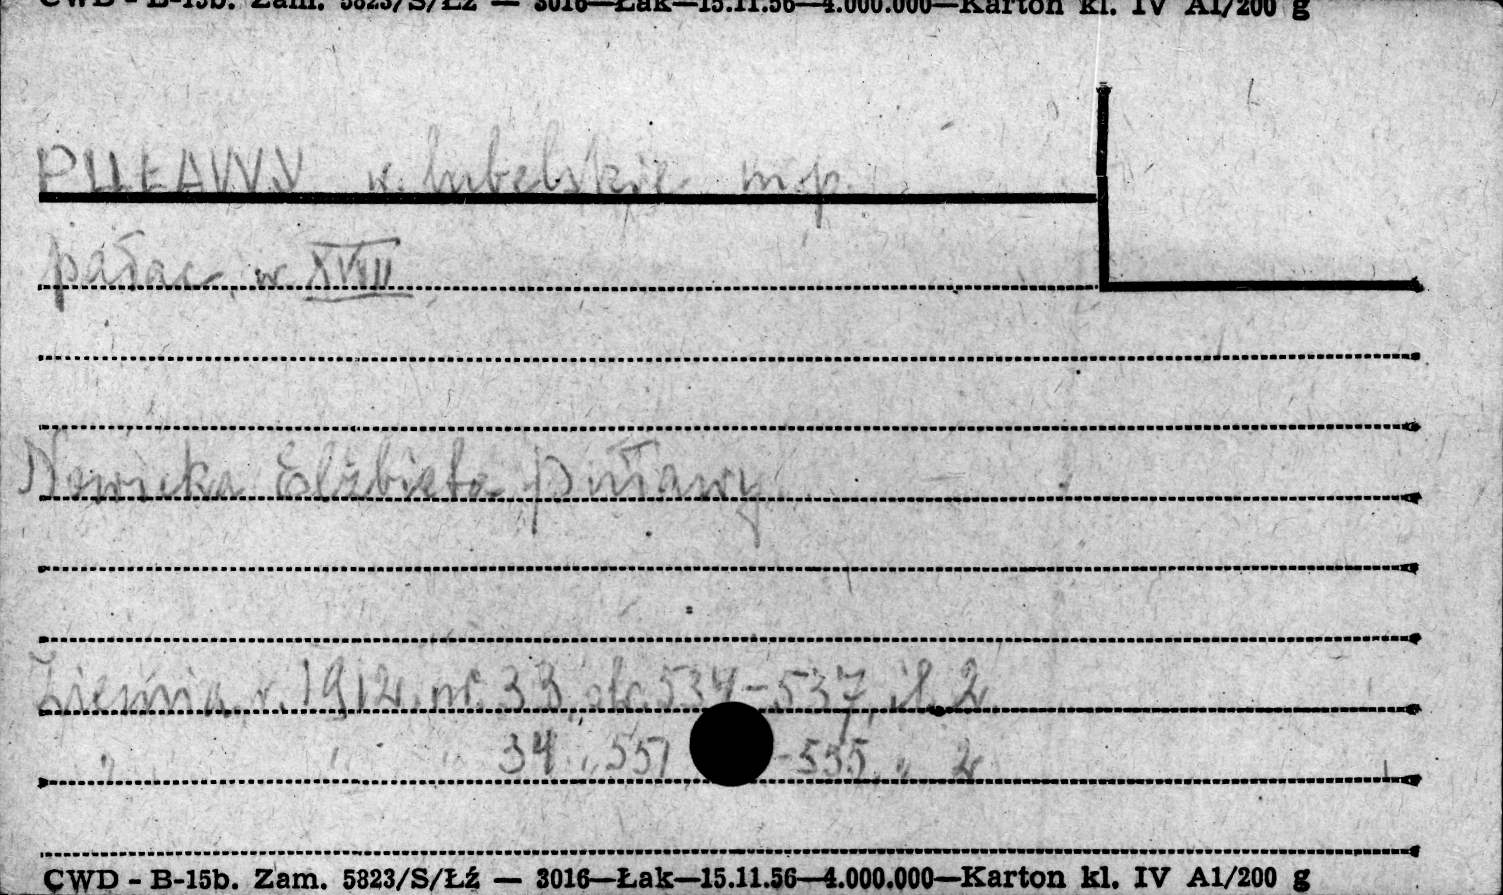 CWD - B-15b. Zam. 5823/S/Łź — 3016—Łak—15.11.56—4.000.000—Karton kl. IV A1/200 g
PUŁAWY w. lubelskie m.p.
pałac, w. XVIII
Nowicka Elżbieta Puławy
Ziemia r. 1912. nr. 33, str. 534-537, il. 2.
" " " 34 " 551 -555 " 2
CWD - B-15b. Zam. 5823/S/Łź — 3016—Łak—15.11.56—4.000.000—Karton kl. IV A1/200 g